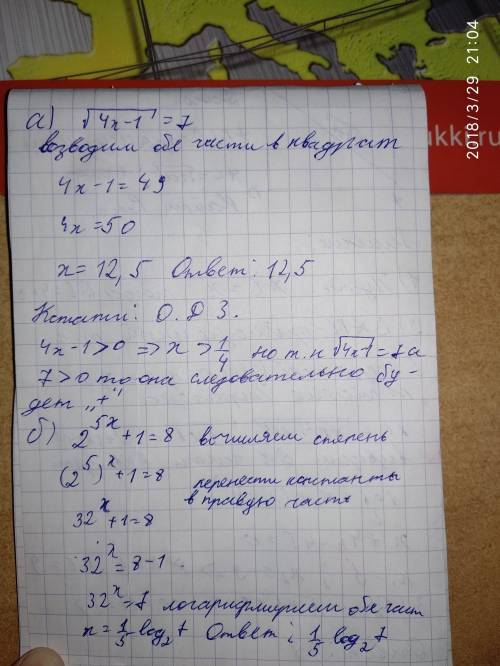 2018/3/29 21:04
ukkiru
а) √4x-1 = 7
возводим обе части в квадрат
4x-1=49
4x=50
x=12,5 Ответ: 12,5
Кстати: О.Д З.
4x-1>0 => x > 1/4 но т.к √4x-1=7 а
7>0 то она следовательно бу-
дет „+"
б) 2^5x +1=8 вычиляем степень
(2^5)^x +1=8 перенести константы
в правую часть
32^x +1=8
32^x = 8-1
32^x=7 логарифмируем обе част
x=1/5 log_2 7 Ответ: 1/5 log_2 7